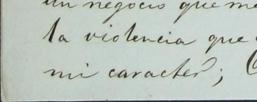 un negocio que me
la violencia que
mi caracter;